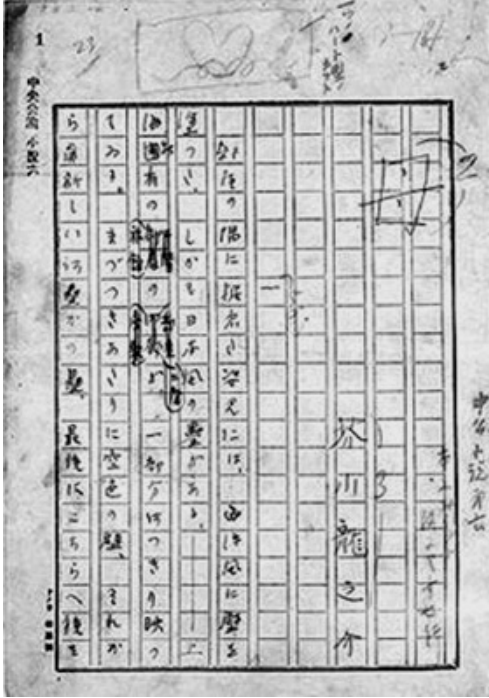 1
23
母
芥川龍之介
一
部屋の隅に据ゑた姿見には、西洋風に壁を
塗つた、しかも日本風の畳がある、――上
海特有の旅館の二階が、一部分はつきり映つ
てゐる。まづつきあたりに空色の壁、それか
ら真新しい何畳かの畳、最後にこちらへ後を
中央公論 小説六